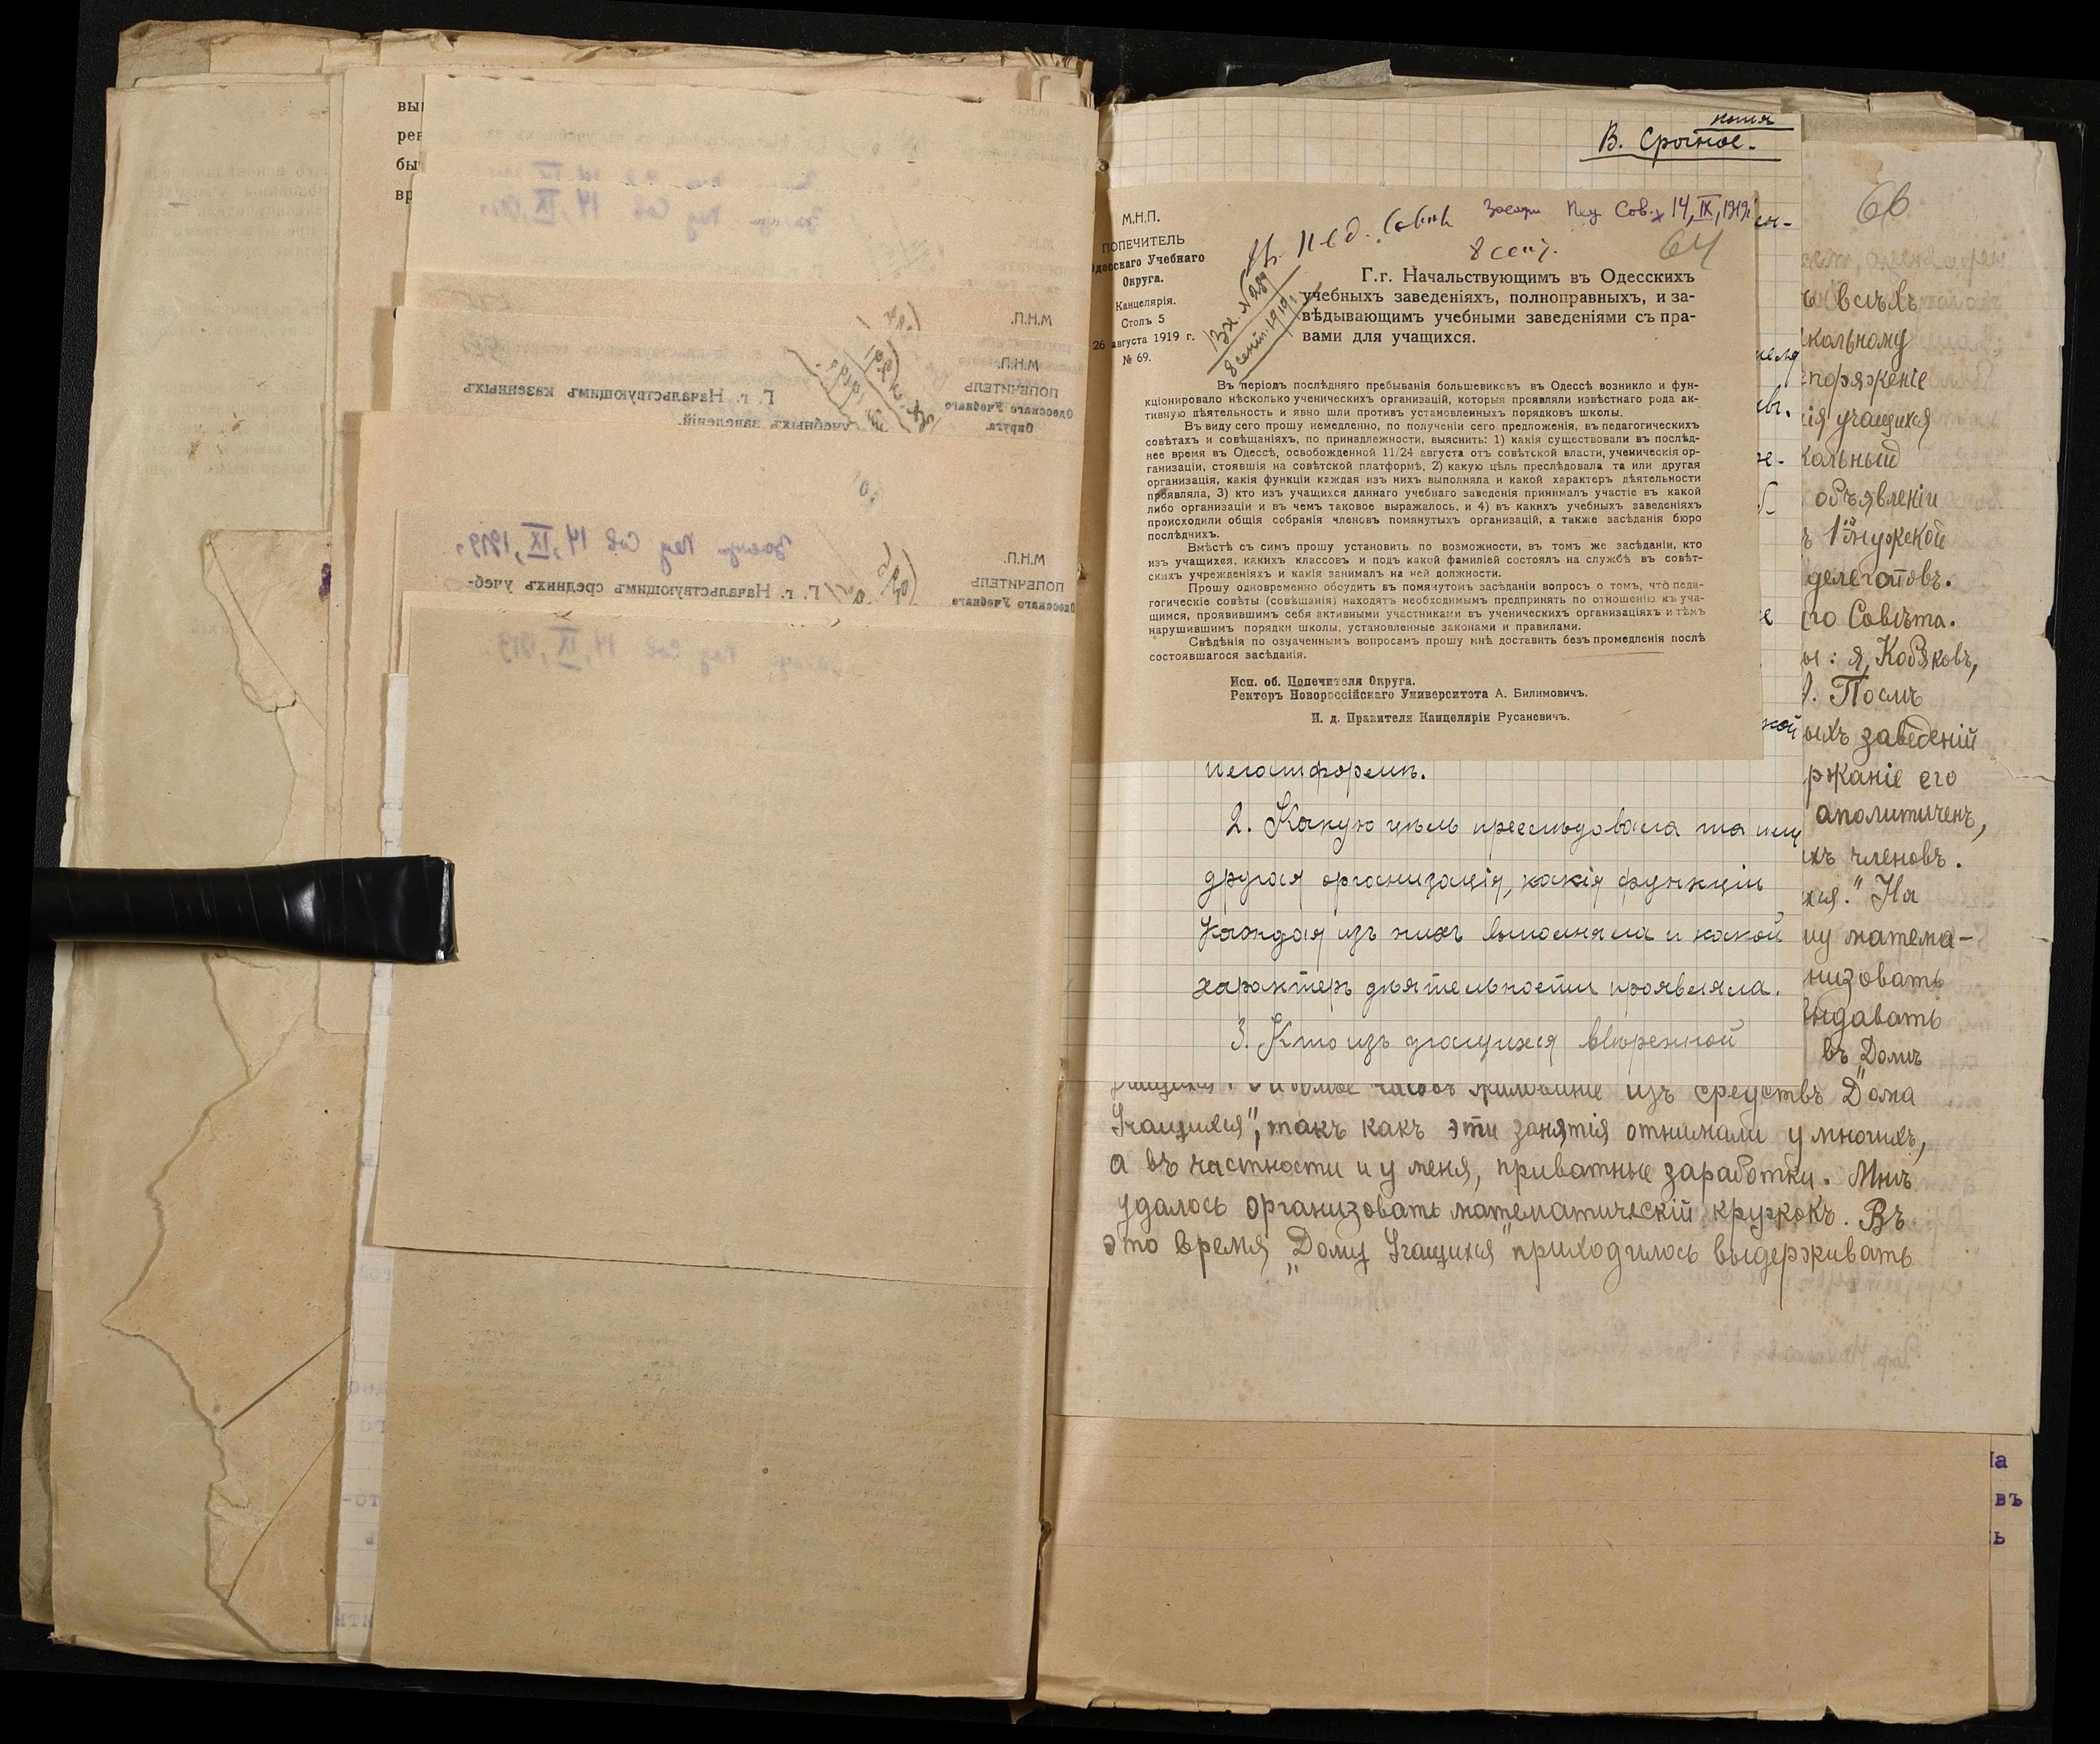 вы
рев
бы
вр
копія
В. Срочное.
66
М.Н.П.
ПОПЕЧИТЕЛЬ
Одесскаго Учебнаго
Округа.
Канцелярія.
Столъ 5
26 августа 1919 г.
№ 69.
Въ Пед. Совѣтъ
8 сент.
Засѣд. Пед. Сов. 14, IX, 1919 г.
64
Вх. № 289
8 сент. 1919 г.
Г.г. Начальствующимъ въ Одесскихъ
учебныхъ заведеніяхъ, полноправныхъ, и за-
вѣдывающимъ учебными заведеніями съ пра-
вами для учащихся.
Въ періодъ послѣдняго пребыванія большевиковъ въ Одессѣ возникло и фун-
кціонировало нѣсколько ученическихъ организацій, которыя проявляли извѣстнаго рода ак-
тивную дѣятельность и явно шли противъ установленныхъ порядковъ школы.
Въ виду сего прошу немедленно, по полученіи сего предложенія, въ педагогическихъ
совѣтахъ и совѣщаніяхъ, по принадлежности, выяснить: 1) какія существовали въ послѣд-
нее время въ Одессѣ, освобожденной 11/24 августа отъ совѣтской власти, ученическія ор-
ганизаціи, стоявшія на совѣтской платформѣ, 2) какую цѣль преслѣдовала та или другая
организація, какія функціи каждая изъ нихъ выполняла и какой характеръ дѣятельности
проявляла, 3) кто изъ учащихся даннаго учебнаго заведенія принималъ участіе въ какой
либо организаціи и въ чемъ таковое выражалось, и 4) въ какихъ учебныхъ заведеніяхъ
происходили общія собранія членовъ помянутыхъ организацій, а также засѣданія бюро
послѣднихъ.
Вмѣстѣ съ симъ прошу установить по возможности, въ томъ же засѣданіи, кто
изъ учащихся, какихъ классовъ и подъ какой фамиліей состоялъ на службѣ въ совѣт-
скихъ учрежденіяхъ и какія занималъ на ней должности.
Прошу одновременно обсудить въ помянутомъ засѣданіи вопросъ о томъ, что педа-
гогическіе совѣты (совѣщанія) находятъ необходимымъ предпринять по отношенію къ уча-
щимся, проявившимъ себя активными участниками въ ученическихъ организаціяхъ и тѣмъ
нарушившимъ порядки школы, установленные законами и правилами.
Свѣдѣнія по означеннымъ вопросамъ прошу мнѣ доставить безъ промедленія послѣ
состоявшагося засѣданія.
Исп. об. Попечителя Округа,
Ректоръ Новороссійскаго Университета А. Билимовичъ.
И. д. Правителя Канцеляріи Русановичъ.
платформѣ.
2. Какую цѣль преслѣдовала та или
другая организація, какія функціи
каждая изъ нихъ выполняла и какой
характеръ дѣятельности проявляла.
3. Кто изъ учащихся ввѣренной
всѣхъ
школьному
споряженіе
ія учащихся
кольный
объявленіи
ъ 1ой мужской
делегатовъ.
го Совѣта.
ы: я, Кобяковъ,
Послѣ
ыхъ заведеній
ржаніе его
аполитиченъ,
ихъ членовъ.
хся." На
му матема-
низовать
ыдавать
въ Домѣ
часовъ жалованіе изъ средствъ "Дома
Учащихся", такъ какъ эти занятія отнимали у многихъ,
а въ частности и у меня, приватные заработки. Мнѣ
удалось организовать математическій кружокъ. Въ
это время "Дому Учащихся" приходилось выдерживать
на
въ
ь
Г. г. Начальствующимъ казенныхъ
учебныхъ заведеній.
М.Н.П.
ПОПЕЧИТЕЛЬ
Одесскаго Учебнаго
Округа.
Засѣд. Пед. Сов. 14, IX, 1919 г.
Г. г. Начальствующимъ среднихъ учеб-
М.Н.П.
ПОПЕЧИТЕЛЬ
Одесскаго Учебнаго